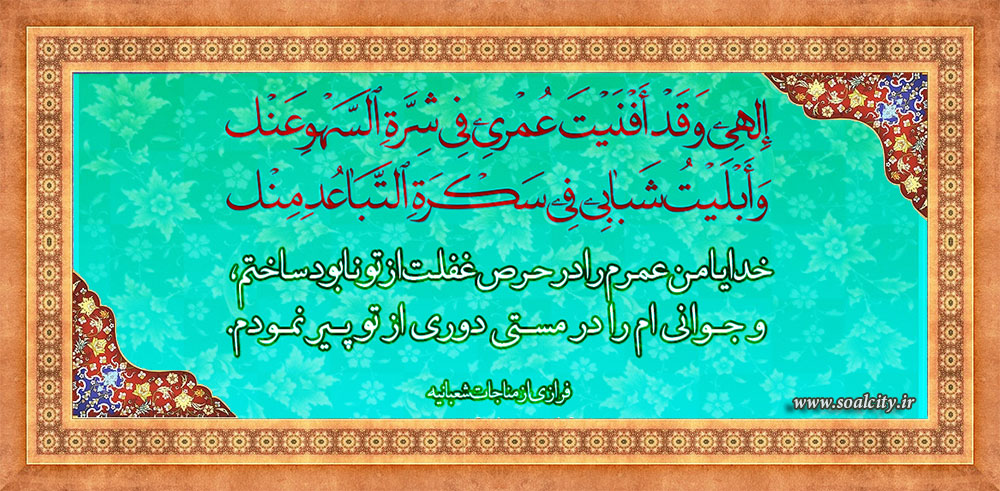 إِلٰهِي وَقَدْ أَفْنَيْتَ عُمْرِي فِي شِرَّةِ ٱلسَّهْوِ عَنْكَ
وَأَبْلَيْتُ شَبَابِي فِي سَكْرَةِ ٱلتَّبَاعُدِ مِنْكَ
خدایا من عمرم را در حرص غفلت از تو نابود ساختم،
و جوانی ام را در مستی دوری از تو پیر نمودم.
فرازی از مناجات شعبانیه
www.soalcity.ir